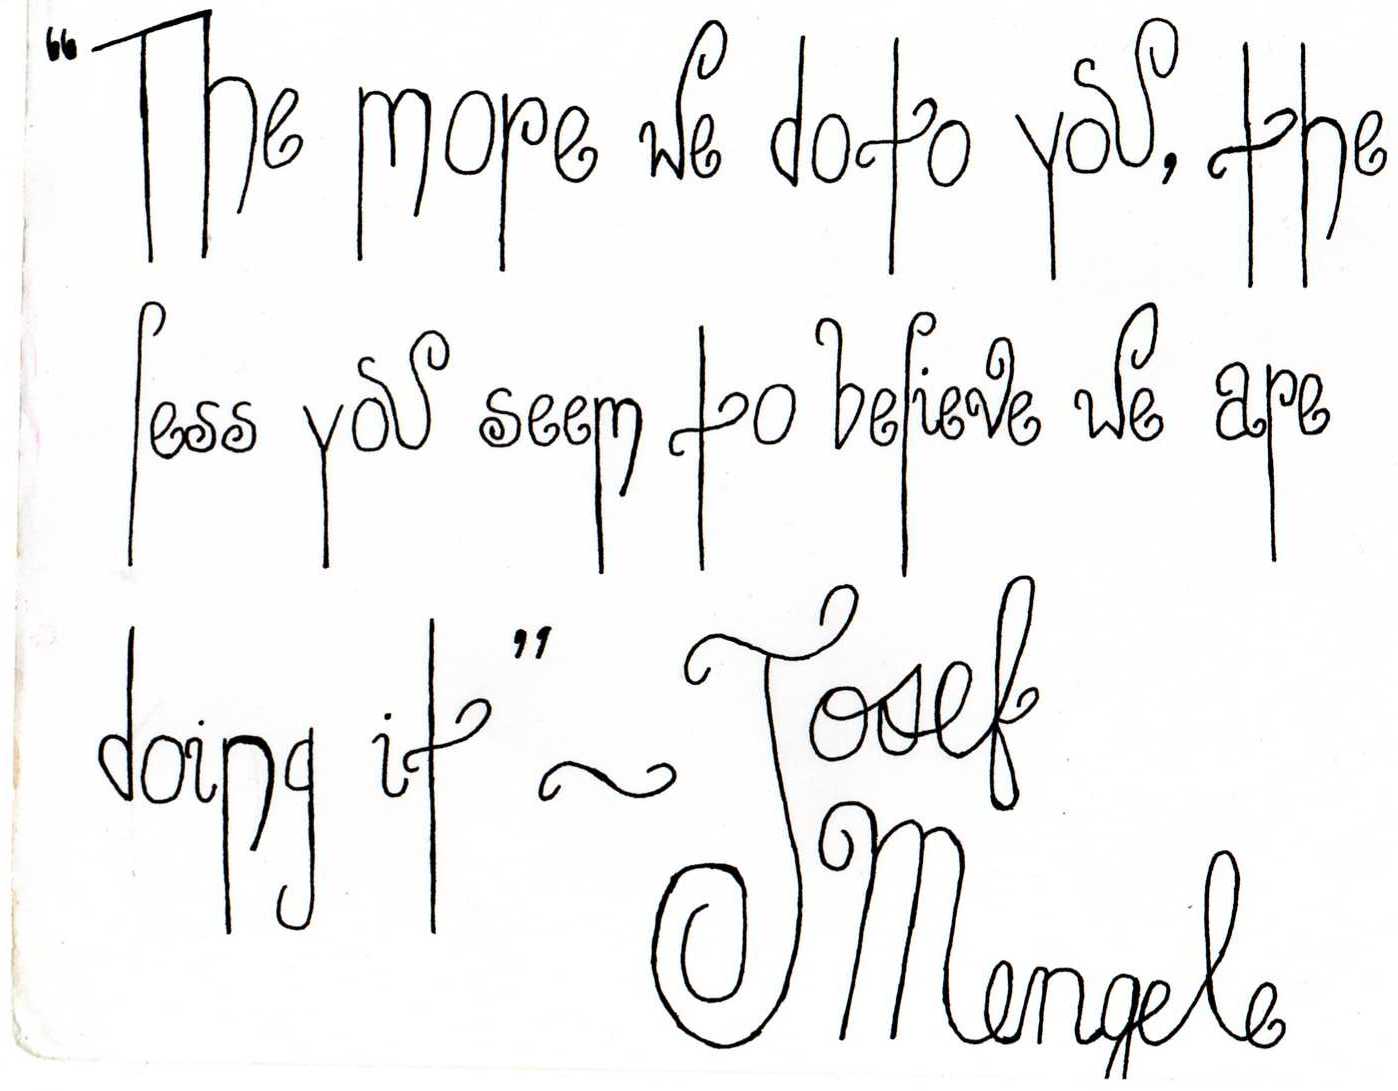 “The more we do to you, the
less you seem to believe we are
doing it” ~ Josef
Mengele